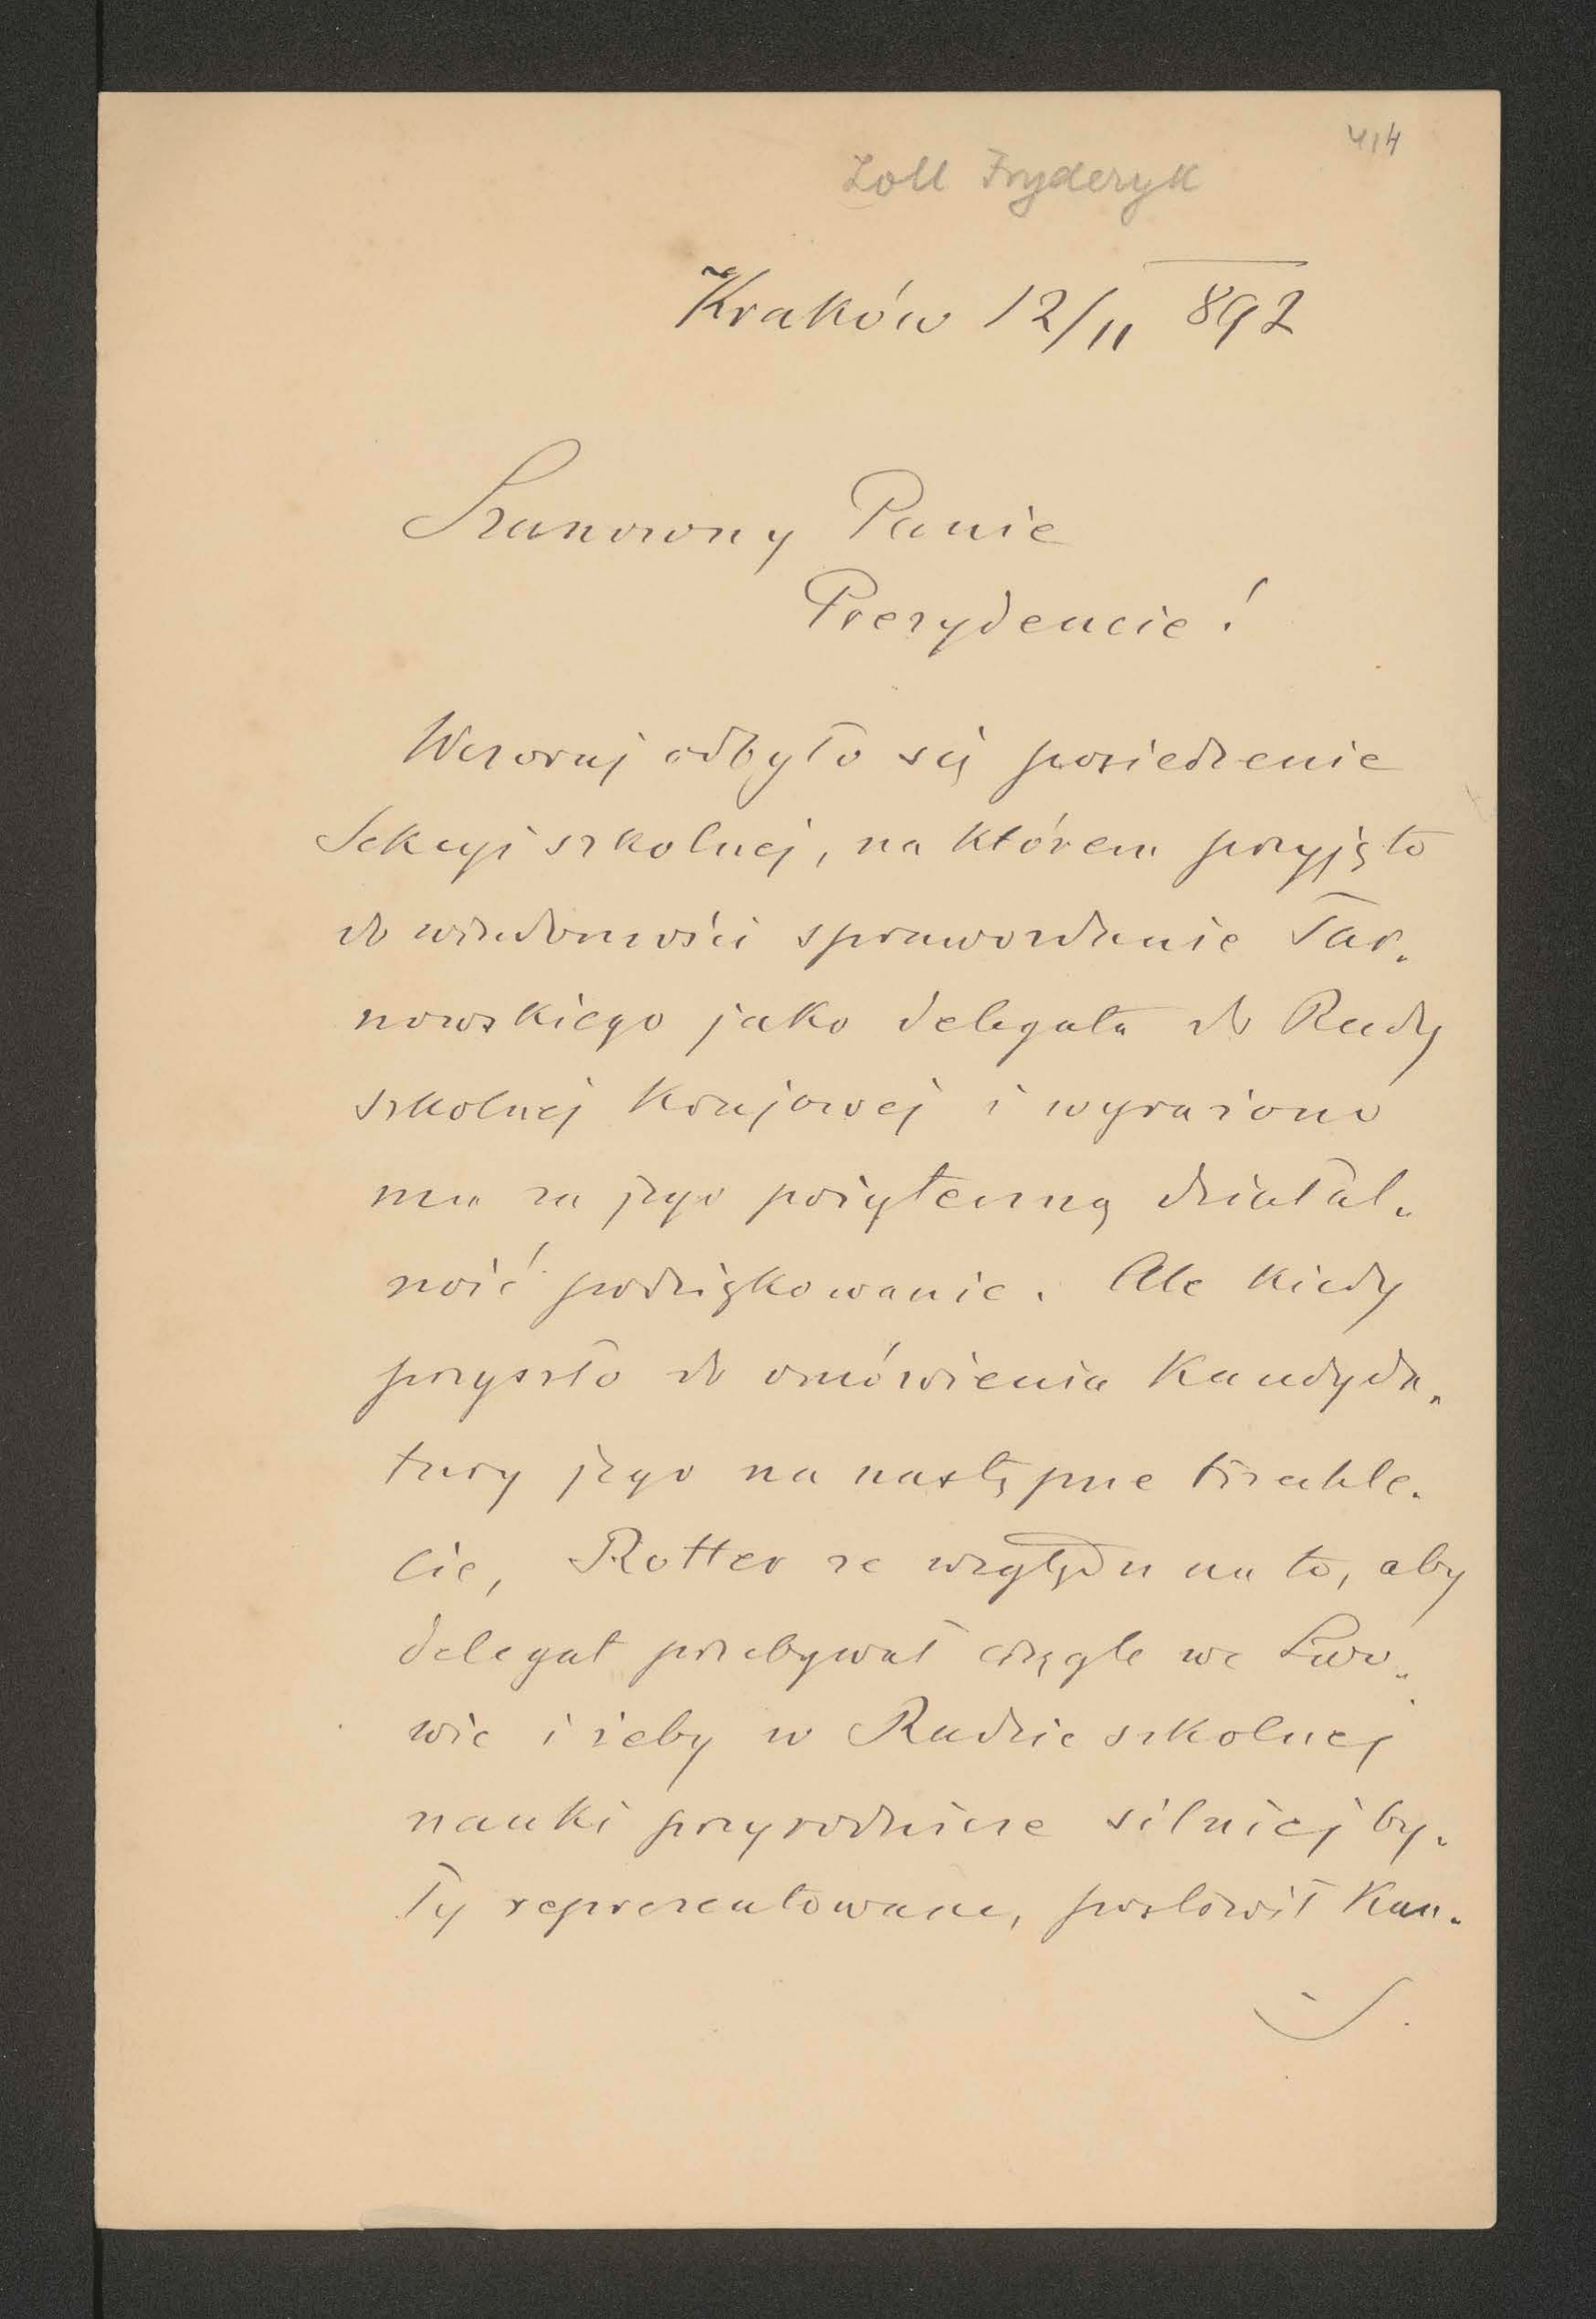 414
Zoll Fryderyk
Kraków 12/11 892
Szanowny Panie
Prezydencie!
Wczoraj odbyło się posiedzenie
Sekcyi szkolnej, na którem przyjęto
do wiadomości sprawozdanie Tar-
nowskiego jako delegata do Rady
szkolnej krajowej i wyrażono
mu za jego pożyteczną działal-
ność podziękowanie. Ale kiedy
przyszło do omówienia kandyda-
tury jego na następne trzechle-
cie, Rotter ze względu na to, aby
delegat przebywał ciągle we Lwo-
wie i żeby w Radzie szkolnej
nauki przyrodnicze silniej by-
ły reprezentowane, postawił kan-